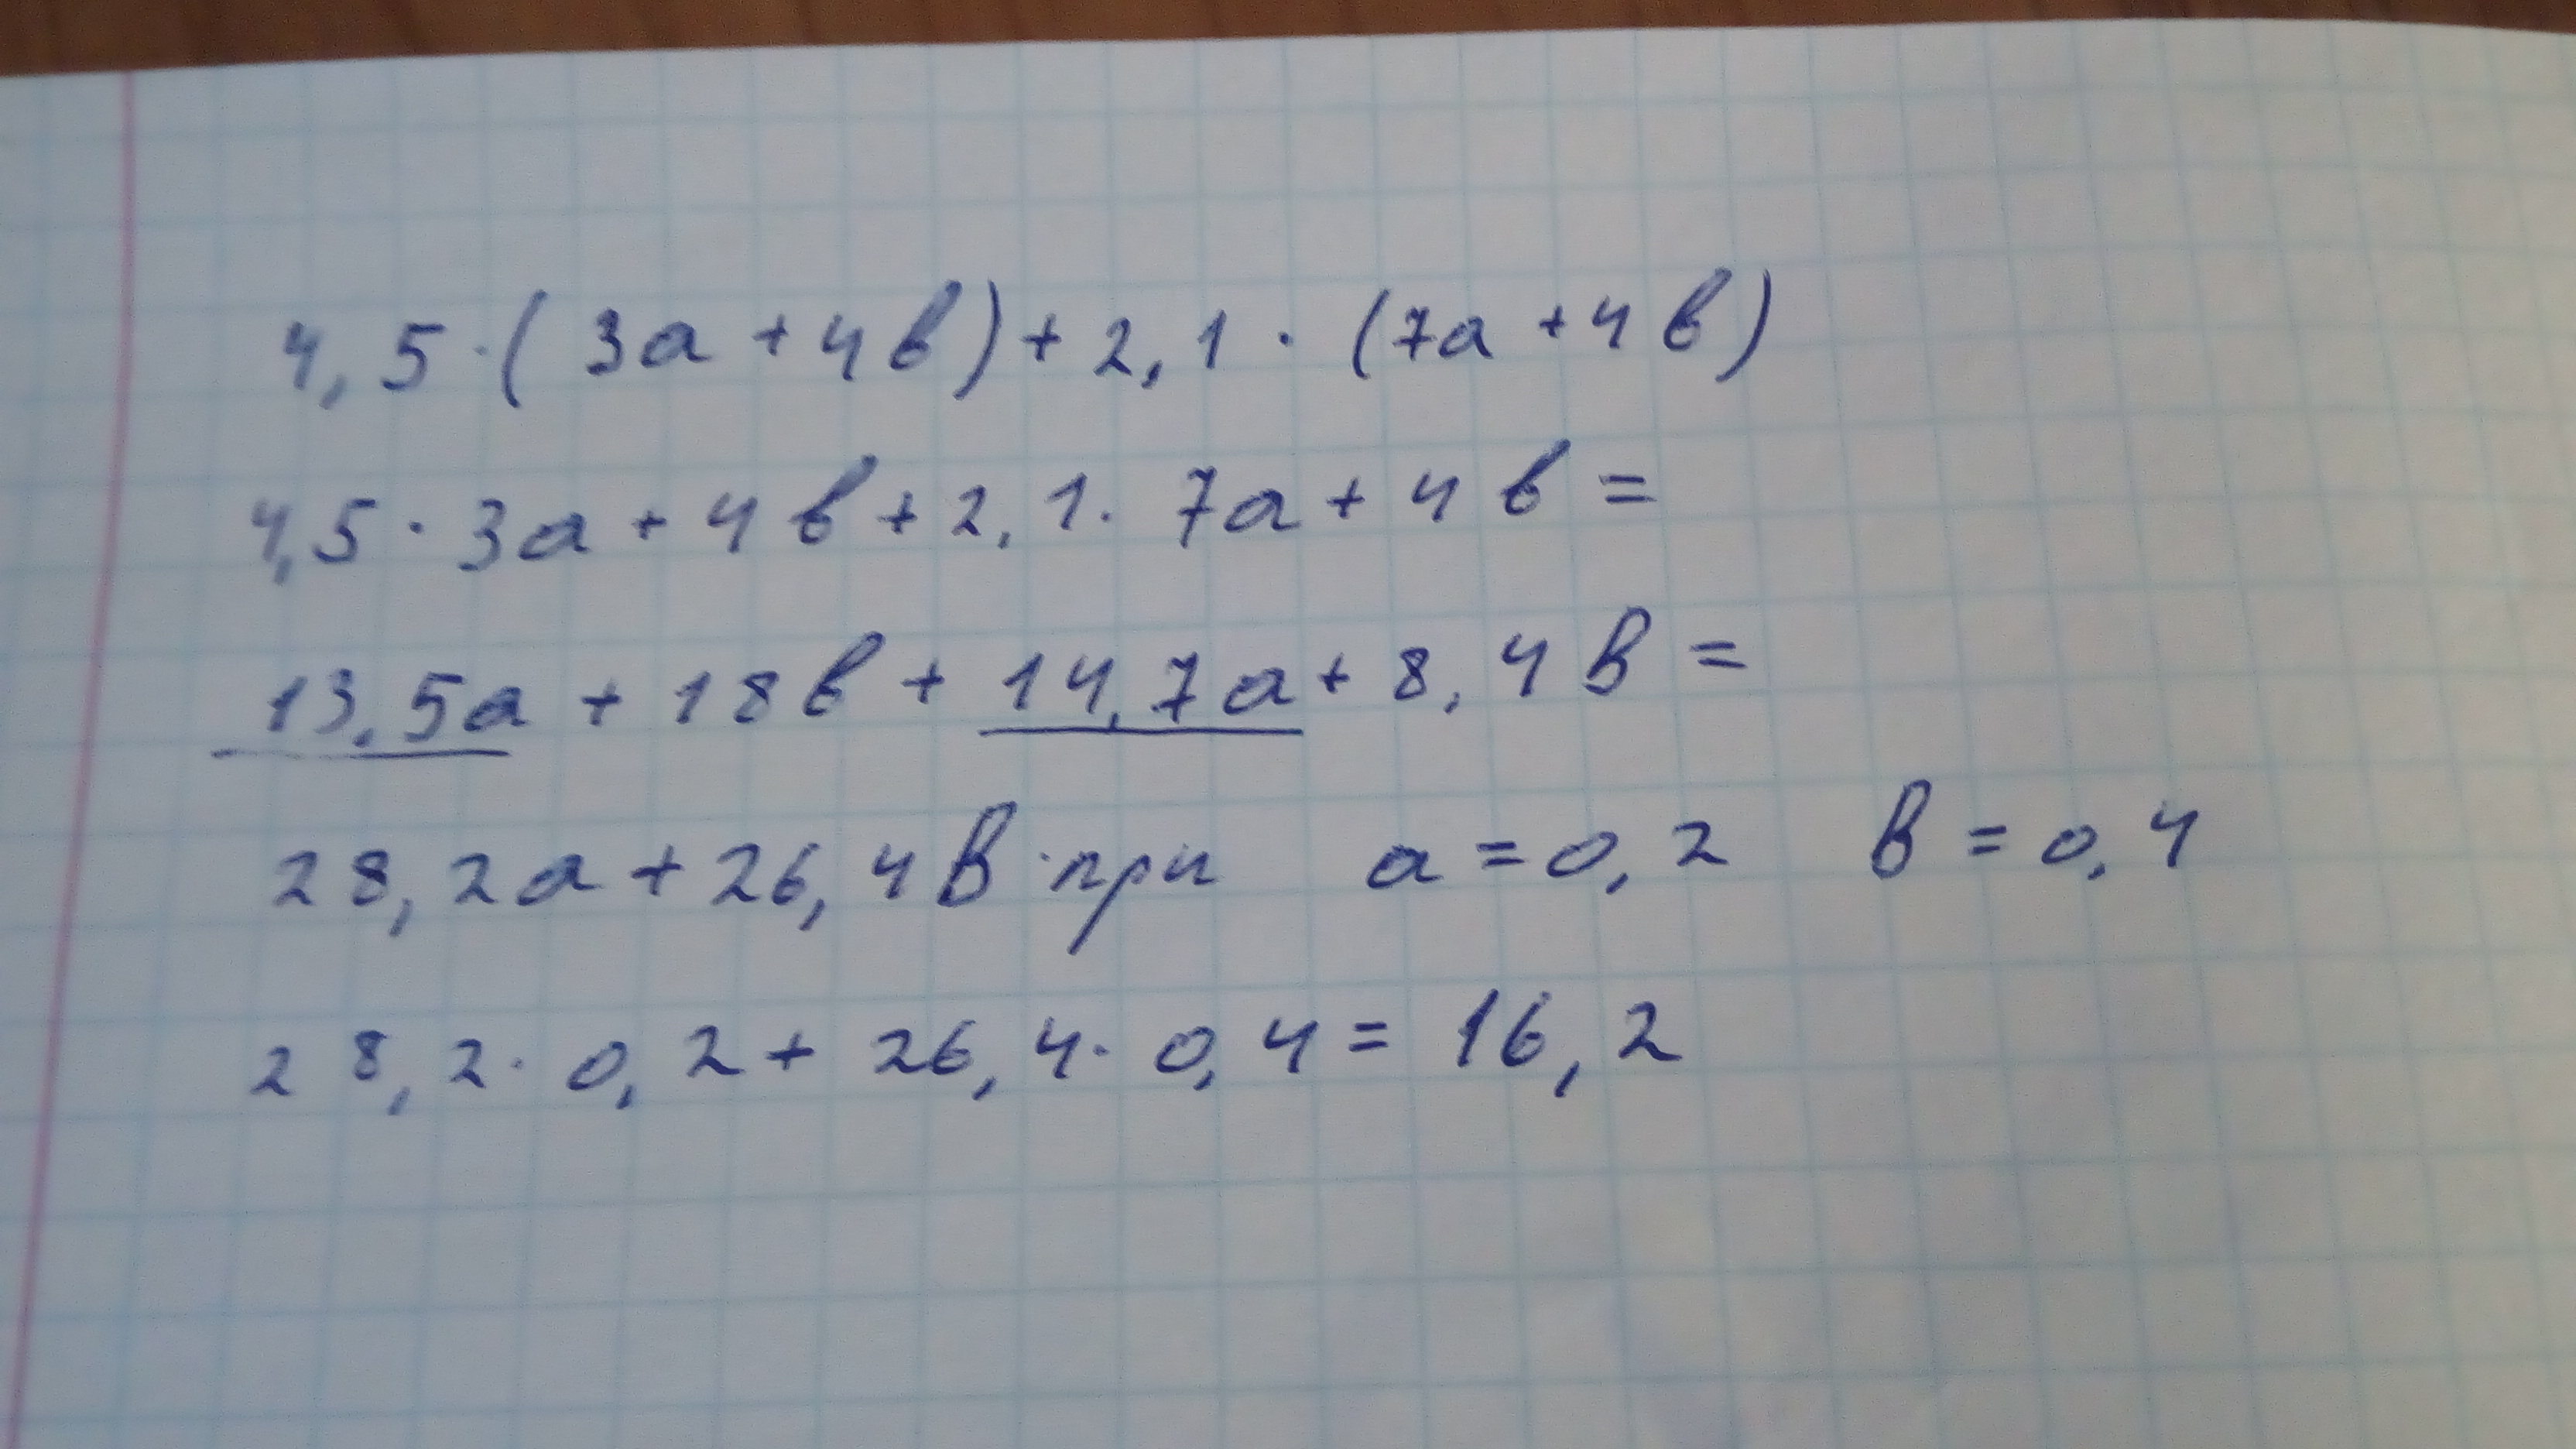 4,5·(3а+4в)+2,1·(7а+4в)
4,5·3а+4в+2,1·7а+4в=
13,5а+18в+14,7а+8,4в=
28,2а+26,4в при а=0,2 в=0,4
28,2·0,2+26,4·0,4=16,2